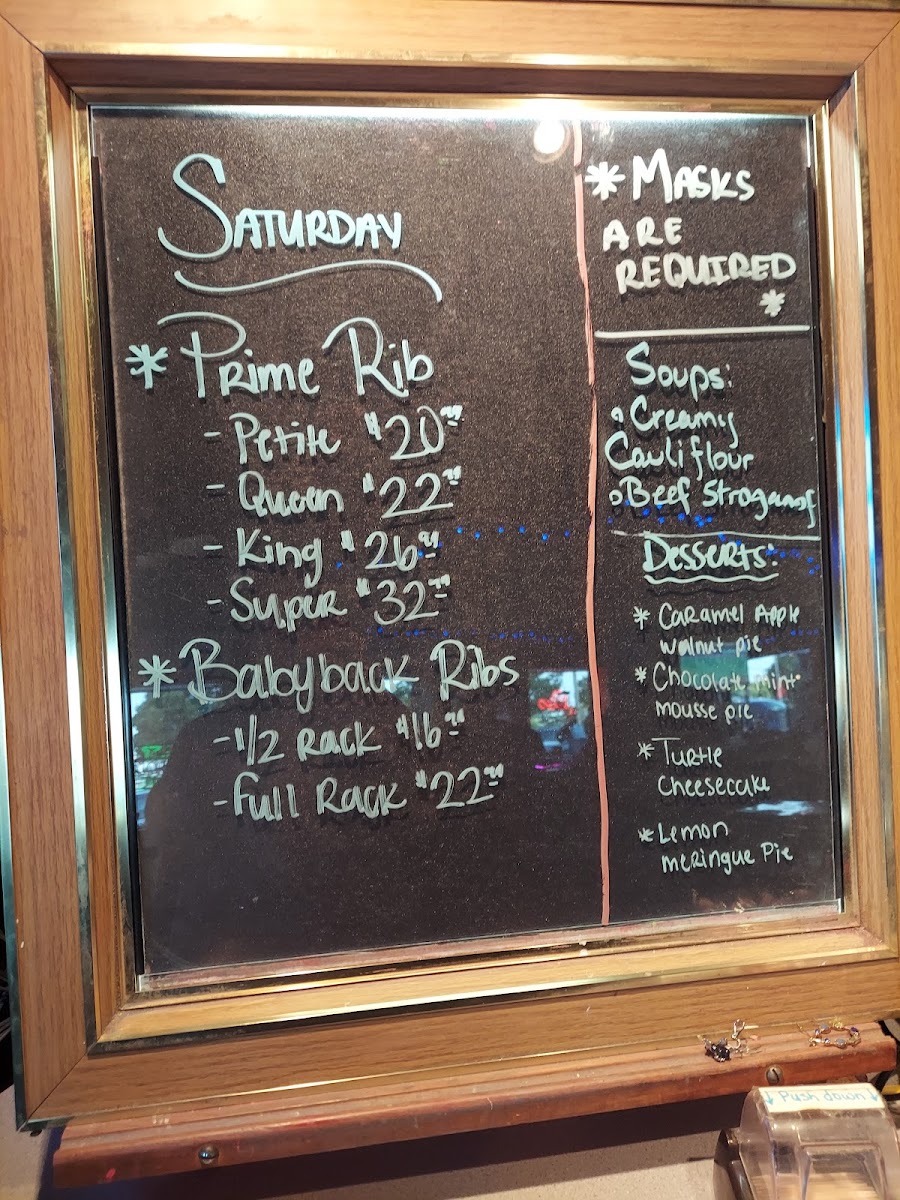 Saturday
* Prime Rib
- Petite $20.99
- Queen $22.99
- King $26.99
- Super $32.99
* Babyback Ribs
- 1/2 Rack $16.99
- Full Rack $22.99
* Masks
are
required
*
Soups:
Creamy
Cauliflour
Beef Stroganof
Desserts:
* Caramel Apple
walnut pie
* Chocolate mint
mousse pie
* Turtle
Cheesecake
* Lemon
meringue Pie
↓ Push down ↓